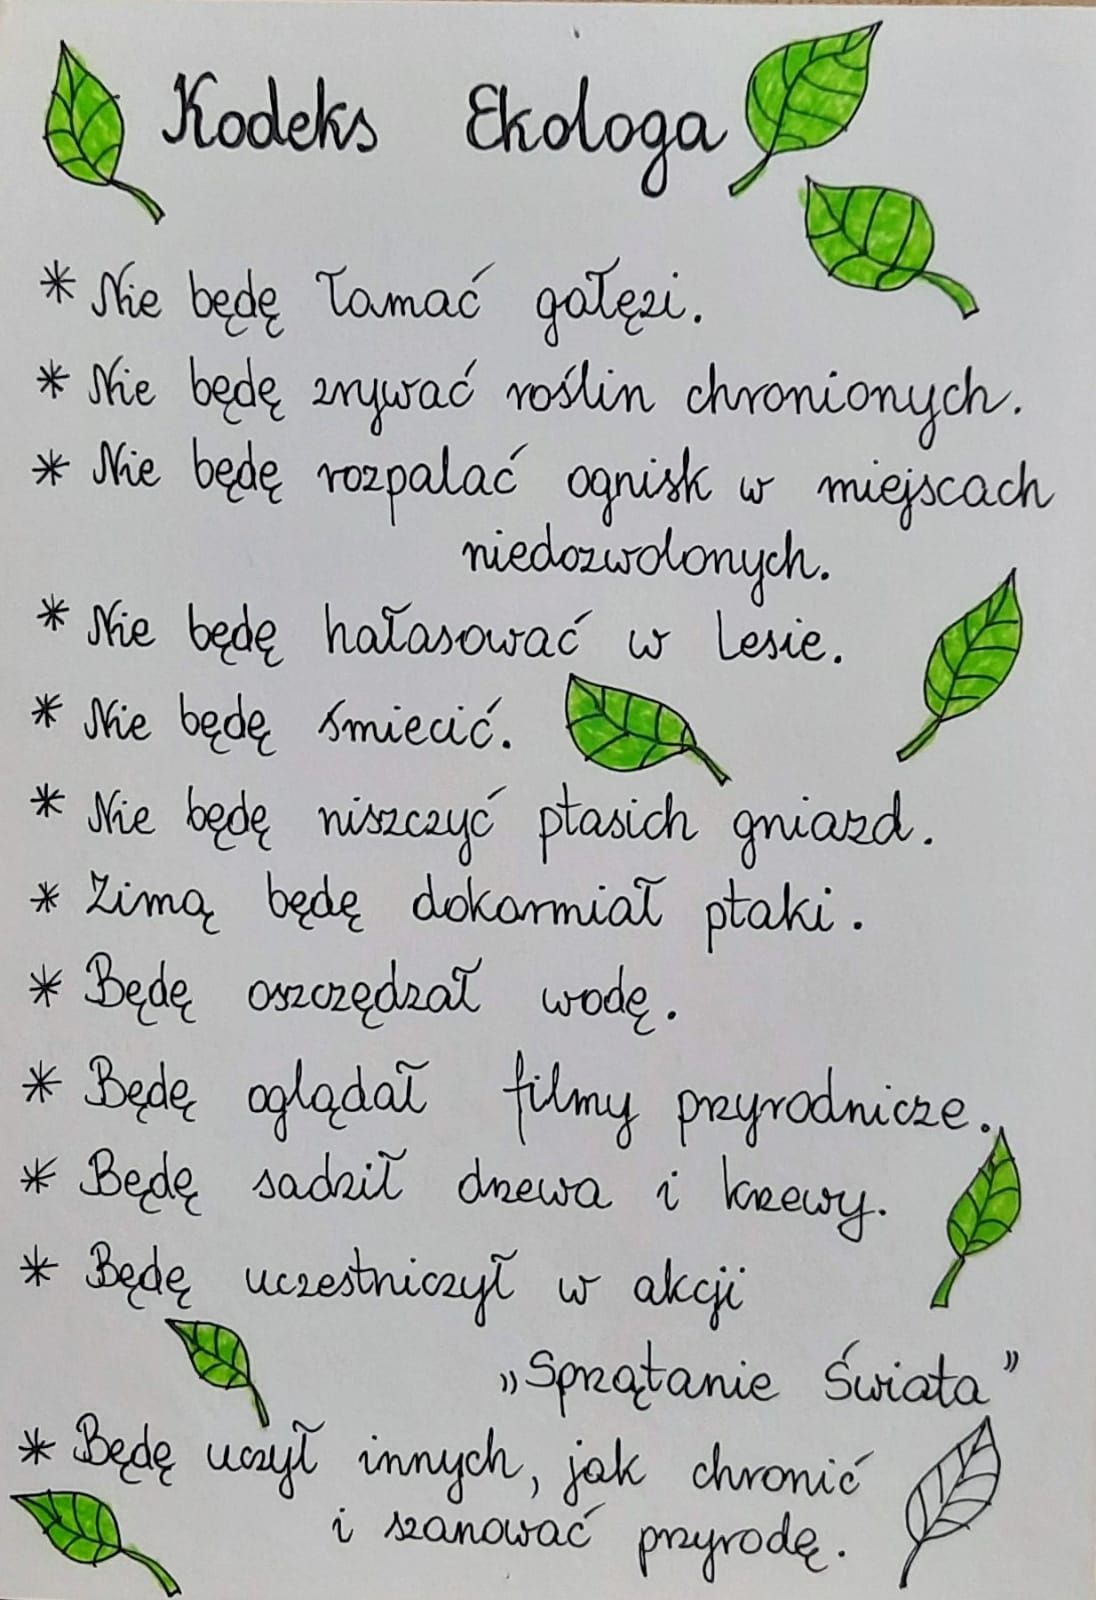 Kodeks Ekologa
* Nie będę łamać gałęzi.
* Nie będę zrywać roślin chronionych.
* Nie będę rozpalać ognisk w miejscach
niedozwolonych.
* Nie będę hałasować w lesie.
* Nie będę śmiecić.
* Nie będę niszczyć ptasich gniazd.
* Zimą będę dokarmiał ptaki.
* Będę oszczędzał wodę.
* Będę oglądał filmy przyrodnicze.
* Będę sadził drzewa i krzewy.
* Będę uczestniczył w akcji
„Sprzątanie Świata”
* Będę uczył innych, jak chronić
i szanować przyrodę.